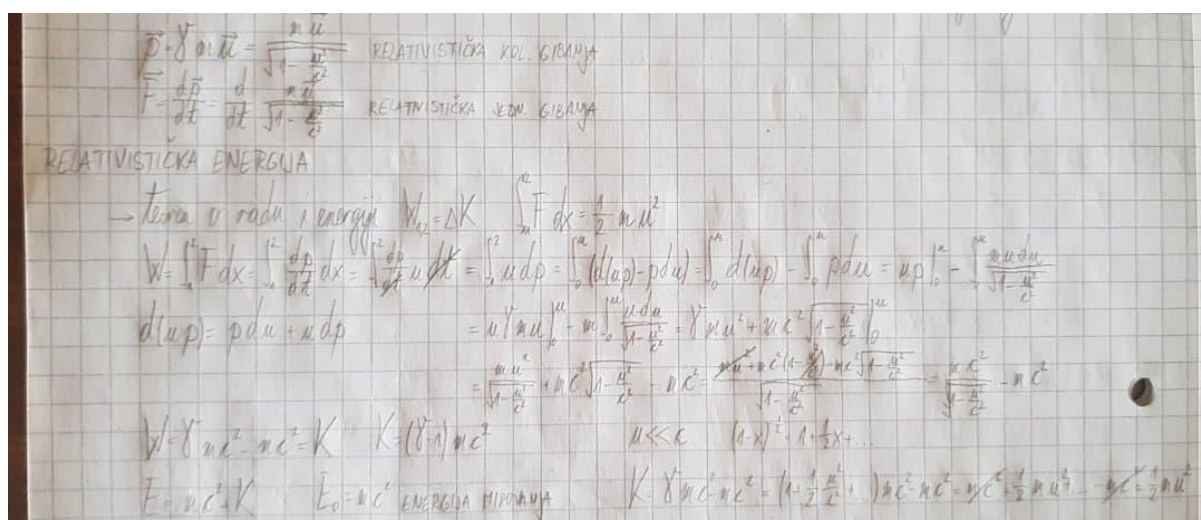 p⃗ = γ m u⃗ = mu⃗ / √(1 - u²/c²) RELATIVISTIČKA KOL. GIBANJA
F⃗ = dp⃗/dt = d/dt mu⃗ / √(1 - u²/c²) RELATIVISTIČKA JEDN. GIBANJA
RELATIVISTIČKA ENERGIJA
→ teorem o radu i energiji W₁₂ = ΔK ∫ F dx = 1/2 mu²
W = ∫₁² F dx = ∫₁² dp/dt dx = ∫₁² dp/dt u dt = ∫₁² u dp = ∫₀ᵘ (d(up) - pdu) = ∫₀ᵘ d(up) - ∫₀ᵘ pdu = up|₀ᵘ - ∫₀ᵘ mudu / √(1 - u²/c²)
d(up) = pdu + udp = uγmu|₀ᵘ - m∫₀ᵘ udu / √(1 - u²/c²) = γmu² + mc² √(1 - u²/c²)|₀ᵘ
= mu² / √(1 - u²/c²) + mc² √(1 - u²/c²) - mc² = (mu² + mc²(1 - u²/c²) - mc² √(1 - u²/c²)) / √(1 - u²/c²) = mc² / √(1 - u²/c²) - mc²
W = γmc² - mc² = K K = (γ-1)mc² u << c (1-x)^½ = 1 + ½x + ...
E = mc² + K E₀ = mc² ENERGIJA MIROVANJA K = γmc² - mc² = (1 + ½ u²/c² + ...)mc² - mc² = mc² + ½ mu² + ... - mc² = ½ mu²